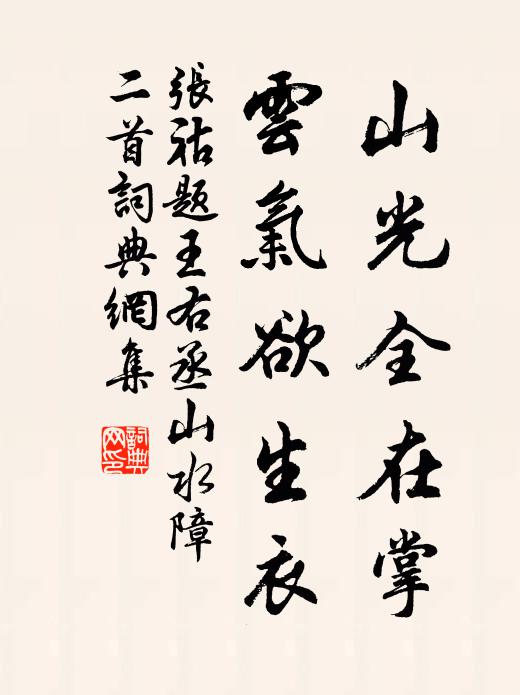 山光全在掌
雲氣欲生衣
張祜題王右丞山水障
二首詞典網集
詞典網印